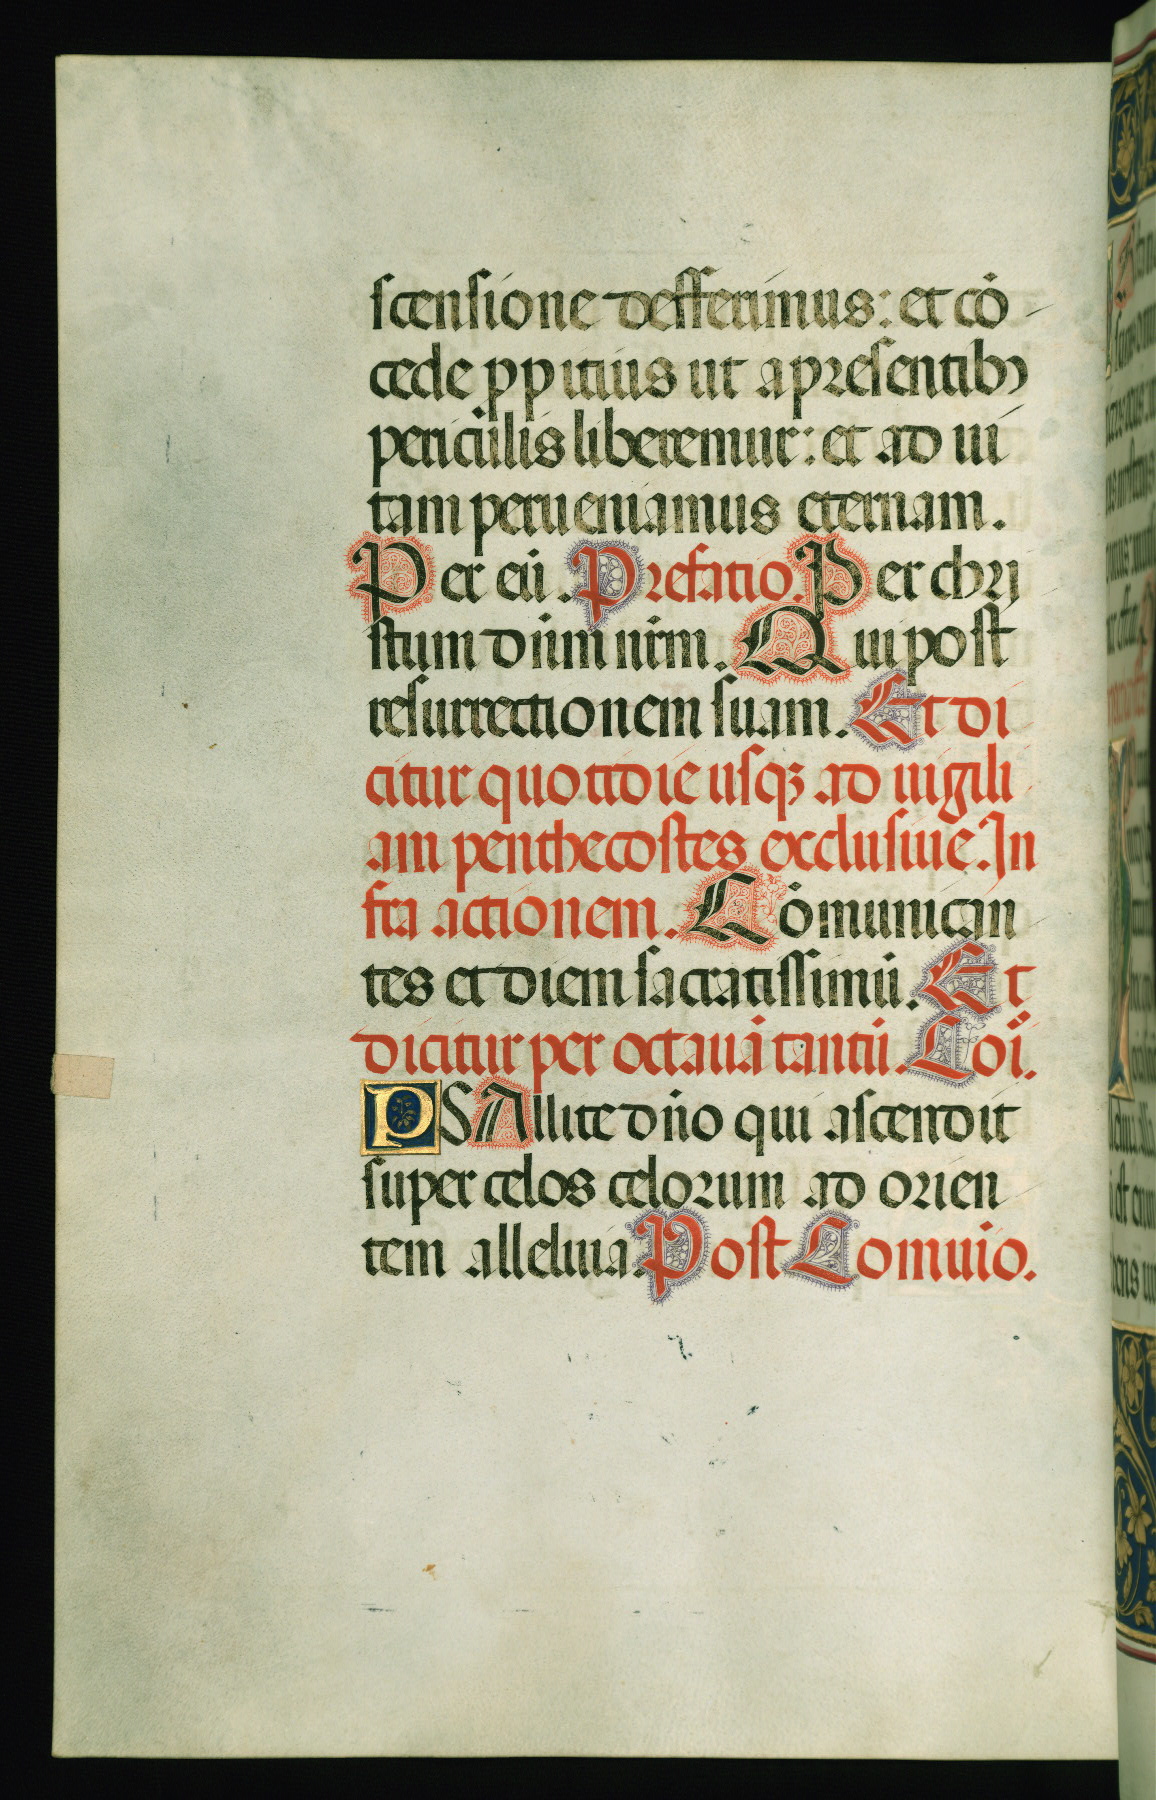 scensione defferimus: et cō
cede ꝓpitius ut a presentibꝫ
periculis liberemur: et ad ui
tam perueniamus eternam.
Per eū. Prefatio. Per chri
stum dnm nrm. Qui post
resurrectionem suam. Et di
citur quottidie usqꝫ ad uigili
am penthecostes exclusiue. In
fra actionem. Cōmunican
tes et diem sacratissimū. Et
dicitur per octauā tantū. Coī.
PSAllite dn̄o qui ascendit
super celos celorum ad orien
tem alleluia. Post Comuio.